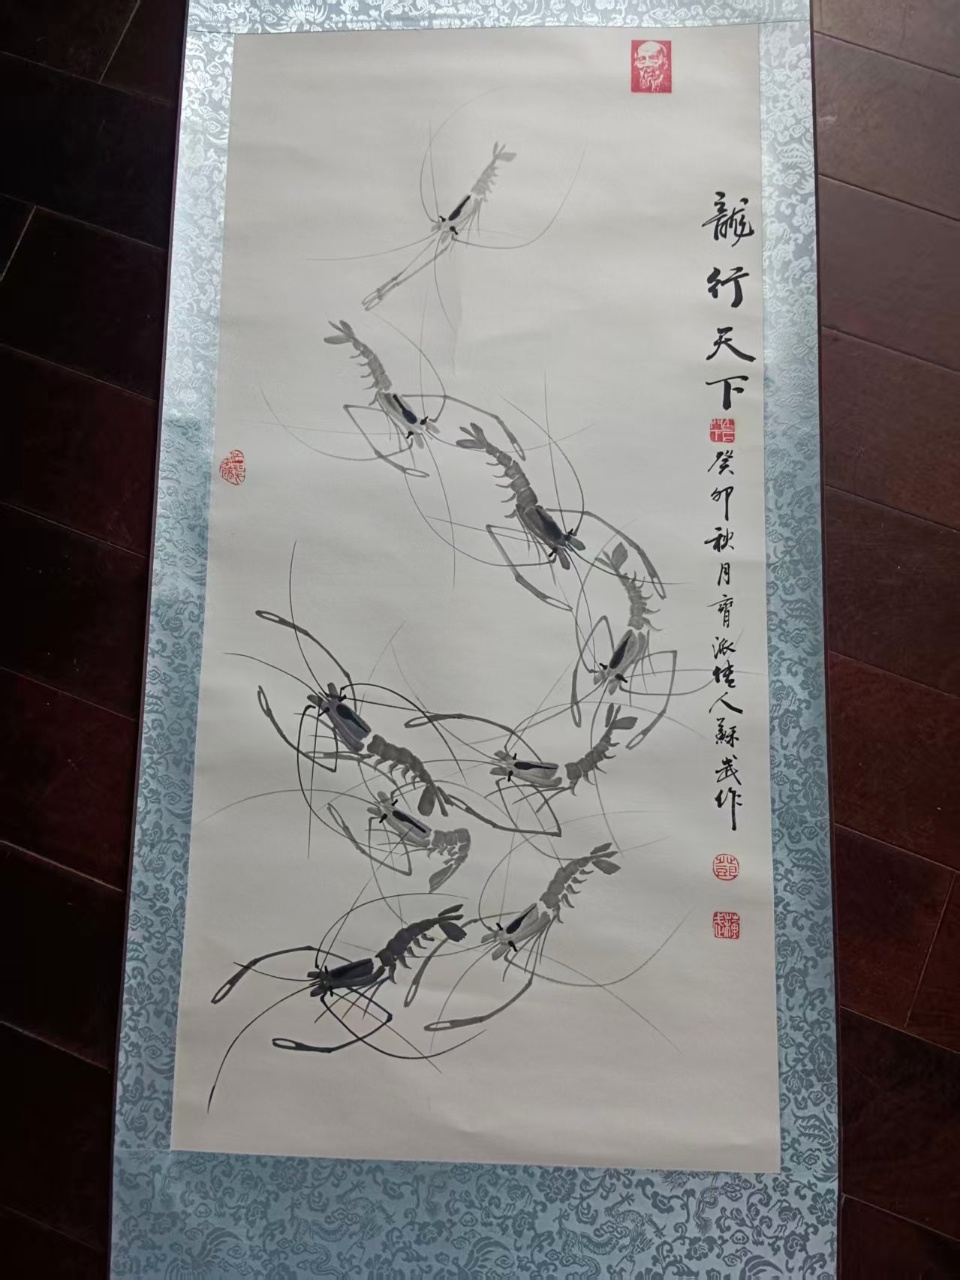 龍行天下
癸卯秋月齊派傳人蘇武作